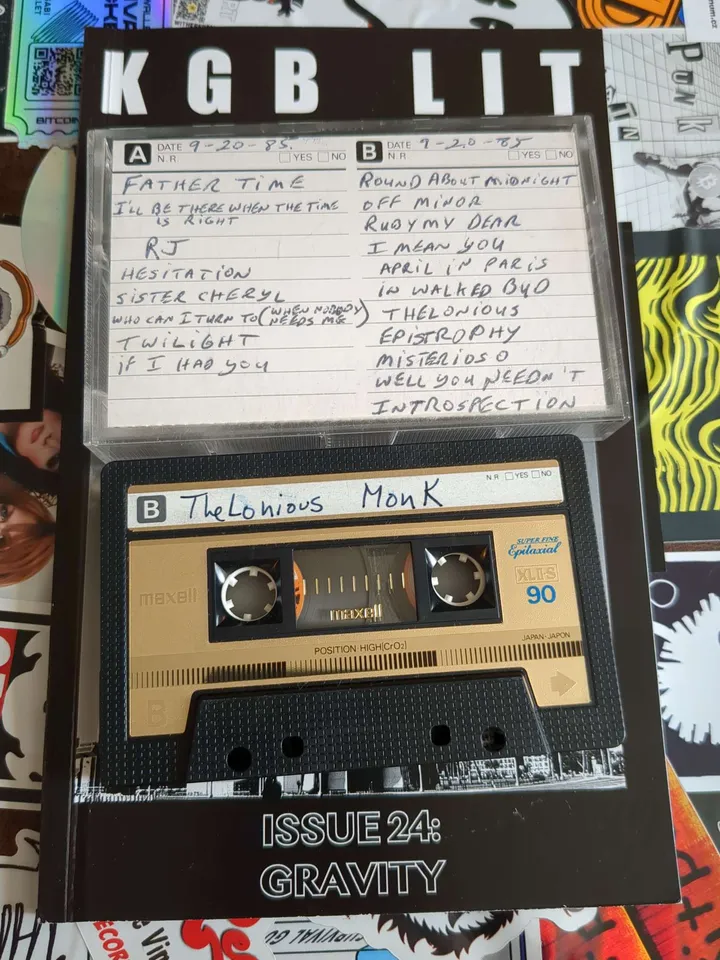 BITCOIN
num.cz
PUNK
KGB LIT
A DATE 9-20-85.
N.R YES NO
FATHER TIME
I'LL BE THERE WHEN THE TIME
IS RIGHT
RJ
HESITATION
SISTER CHERYL
WHO CAN I TURN TO (WHEN NOBODY
NEEDS ME)
TWILIGHT
IF I HAD YOU
B DATE 9-20-85
N.R YES NO
ROUND ABOUT MIDNIGHT
OFF MINOR
RUBY MY DEAR
I MEAN YOU
APRIL IN PARIS
IN WALKED BUD
THELONIOUS
EPISTROPHY
MISTERIOSO
WELL YOU NEEDN'T
INTROSPECTION
N.R YES NO
B TheLonious Monk
SUPER FINE
Epitaxial
maxell
XLII-S
90
maxell
JAPAN·JAPON
POSITION·HIGH(CrO2)
B
ISSUE 24:
GRAVITY